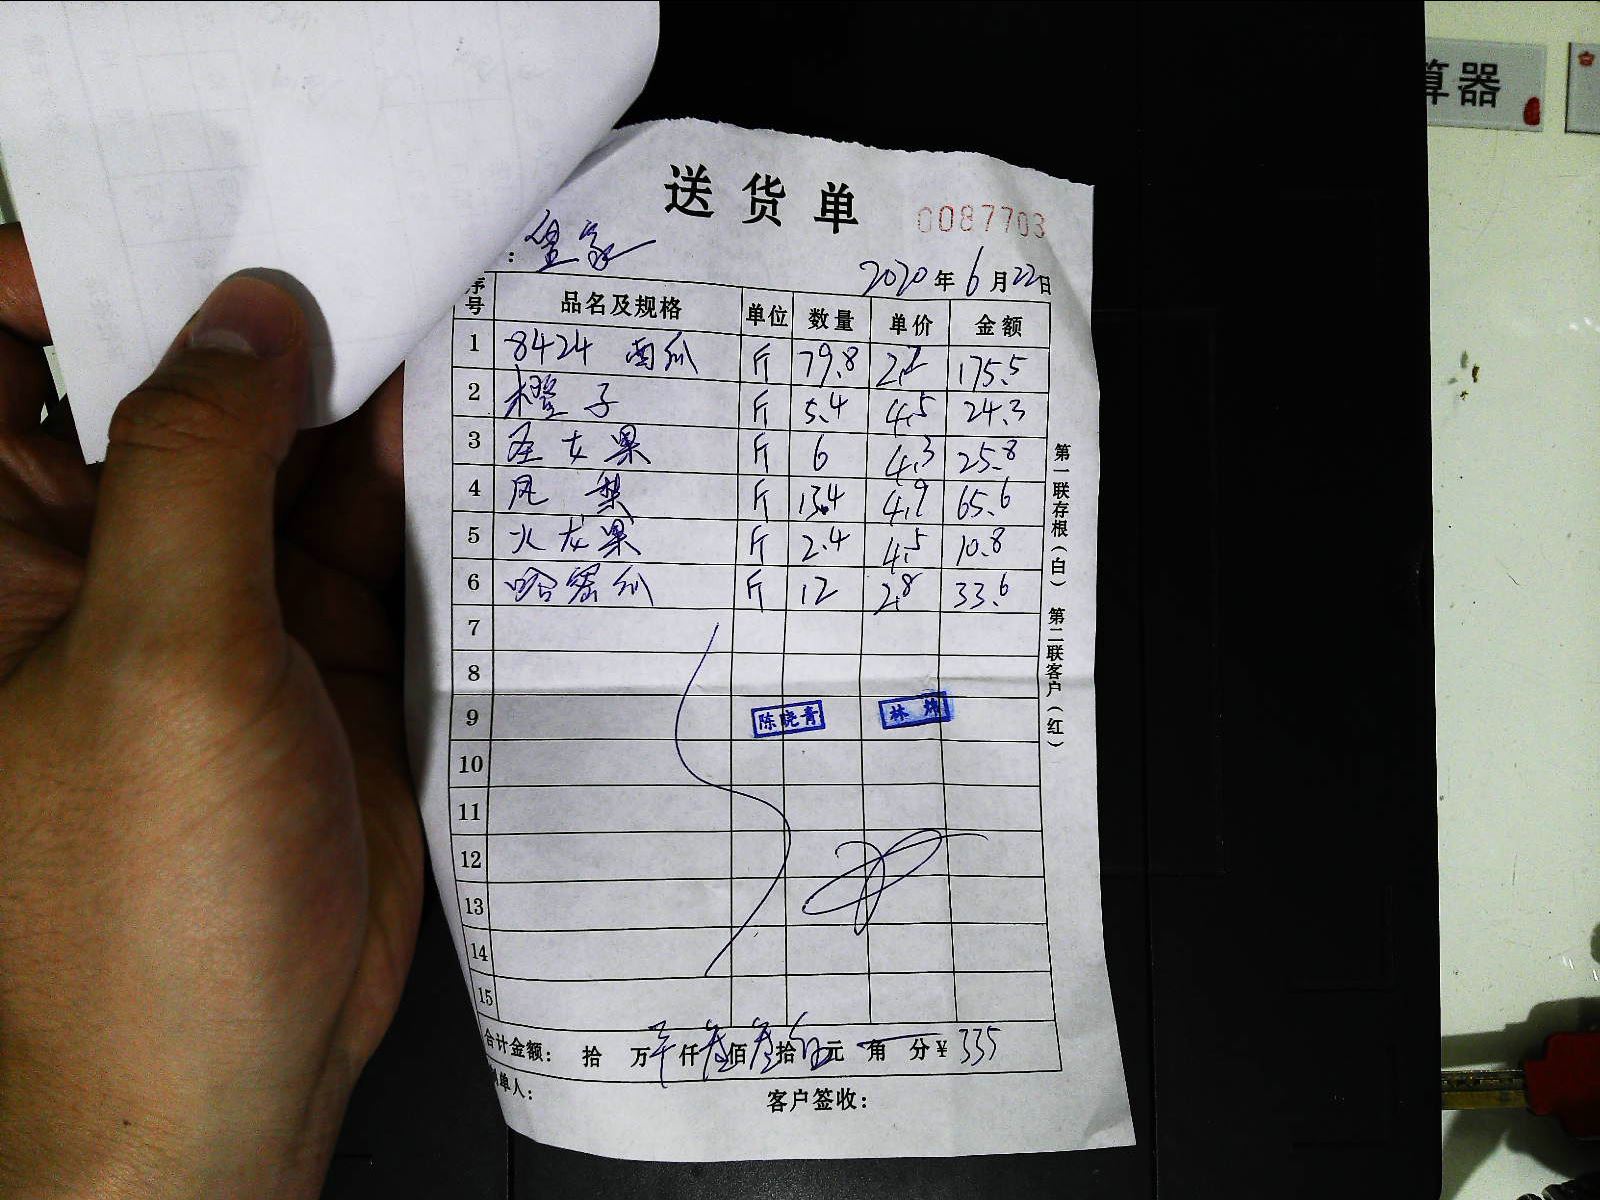 算器
送货单
0087703
: 皇家
2020年6月22日
序号 品名及规格 单位 数量 单价 金额
1 8424 西瓜 斤 79.8 2.2 175.5
2 橙子 斤 5.4 4.5 24.3
3 圣女果 斤 6 4.3 25.8
4 凤梨 斤 13.4 4.9 65.6
5 火龙果 斤 2.4 4.5 10.8
6 哈密瓜 斤 12 2.8 33.6
7
8
9 陈晓青 林
10
11
12
13
14
15
合计金额: 拾 万 仟叁佰叁拾伍元 角 分¥ 335
制单人: 客户签收:
第一联存根(白) 第二联客户(红)